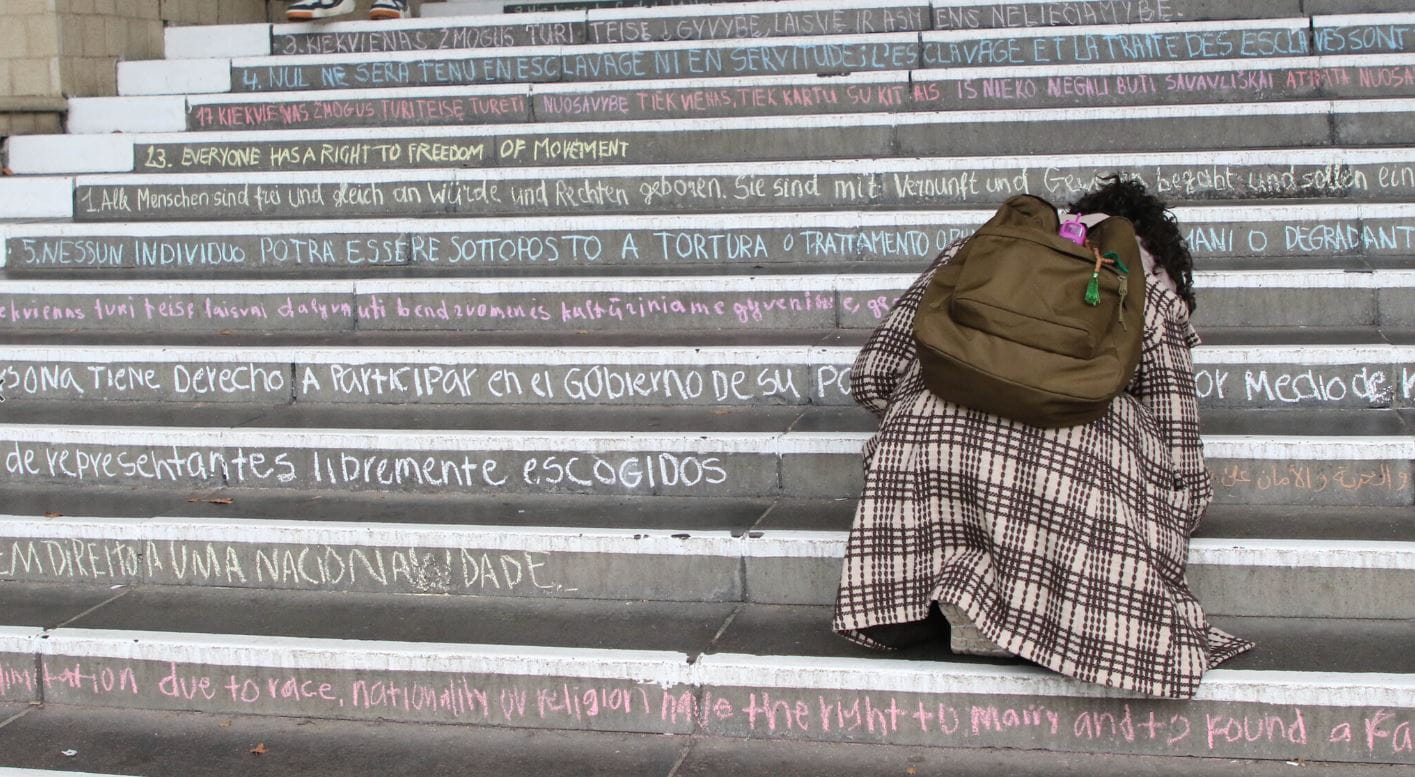 3. KIEKVIENAS ŽMOGUS TURI TEISĘ Į GYVYBĘ, LAISVĘ IR ASMENS NELIEČIAMYBĘ.
4. NUL NE SERA TENU EN ESCLAVAGE NI EN SERVITUDE; L'ESCLAVAGE ET LA TRAITE DES ESCLAVES SONT
17 KIEKVIENAS ŽMOGUS TURI TEISĘ TURĖTI NUOSAVYBĘ TIEK VIENAS, TIEK KARTU SU KITAIS IŠ NIEKO NEGALI BŪTI SAVAVALIŠKAI ATIMTA NUOSA
13. EVERYONE HAS A RIGHT TO FREEDOM OF MOVEMENT
1. Alle Menschen sind frei und gleich an Würde und Rechten geboren. Sie sind mit Vernunft und Gewissen begabt und sollen ein
5. NESSUN INDIVIDUO POTRÀ ESSERE SOTTOPOSTO A TORTURA O TRATTAMENTO O MANI O DEGRADANT
ekvienas turi teisę laisvai dalyvauti bendruomenės kultūriniame gyvenime, ge
SONA TIENE DERECHO A PARTICIPAR en el GOBIERNO DE SU OR MEDIO de
de representantes libremente escogidos
و الحرية و الأمان على
EM DIREITO A UMA NACIONALIDADE.
limitation due to race, nationality or religion have the right to marry and to found a fa